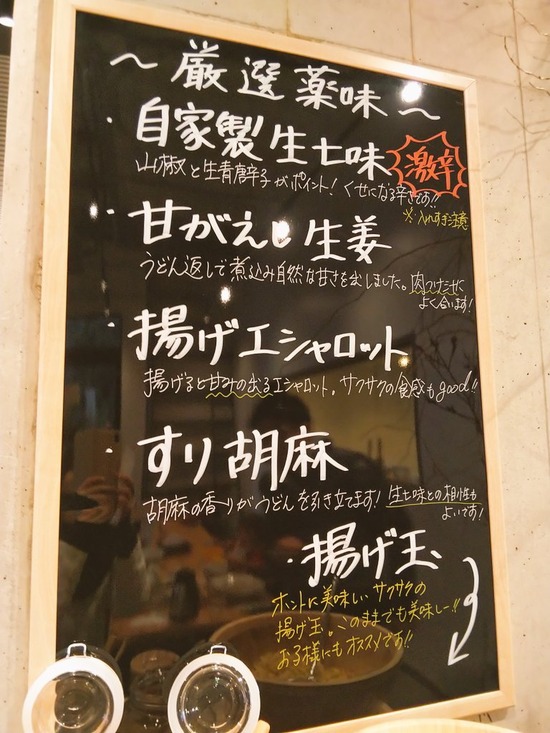 ～厳選薬味～
・自家製生七味
激辛
山椒と生青唐辛子がポイント!くせになる辛さです!!
※入れすぎ注意
・甘がえし生姜
うどん返しで煮込み自然な甘さを出しました。肉つけ汁に
よく合います!
・揚げエシャロット
揚げると甘みの出るエシャロット。サクサクの食感もgood!!
・すり胡麻
胡麻の香りがうどんを引き立てます!生七味との相性も
よいです!
・揚げ玉
ホントに美味しいサクサクの
揚げ玉。このままでも美味しー!!
お子様にもオススメです!!